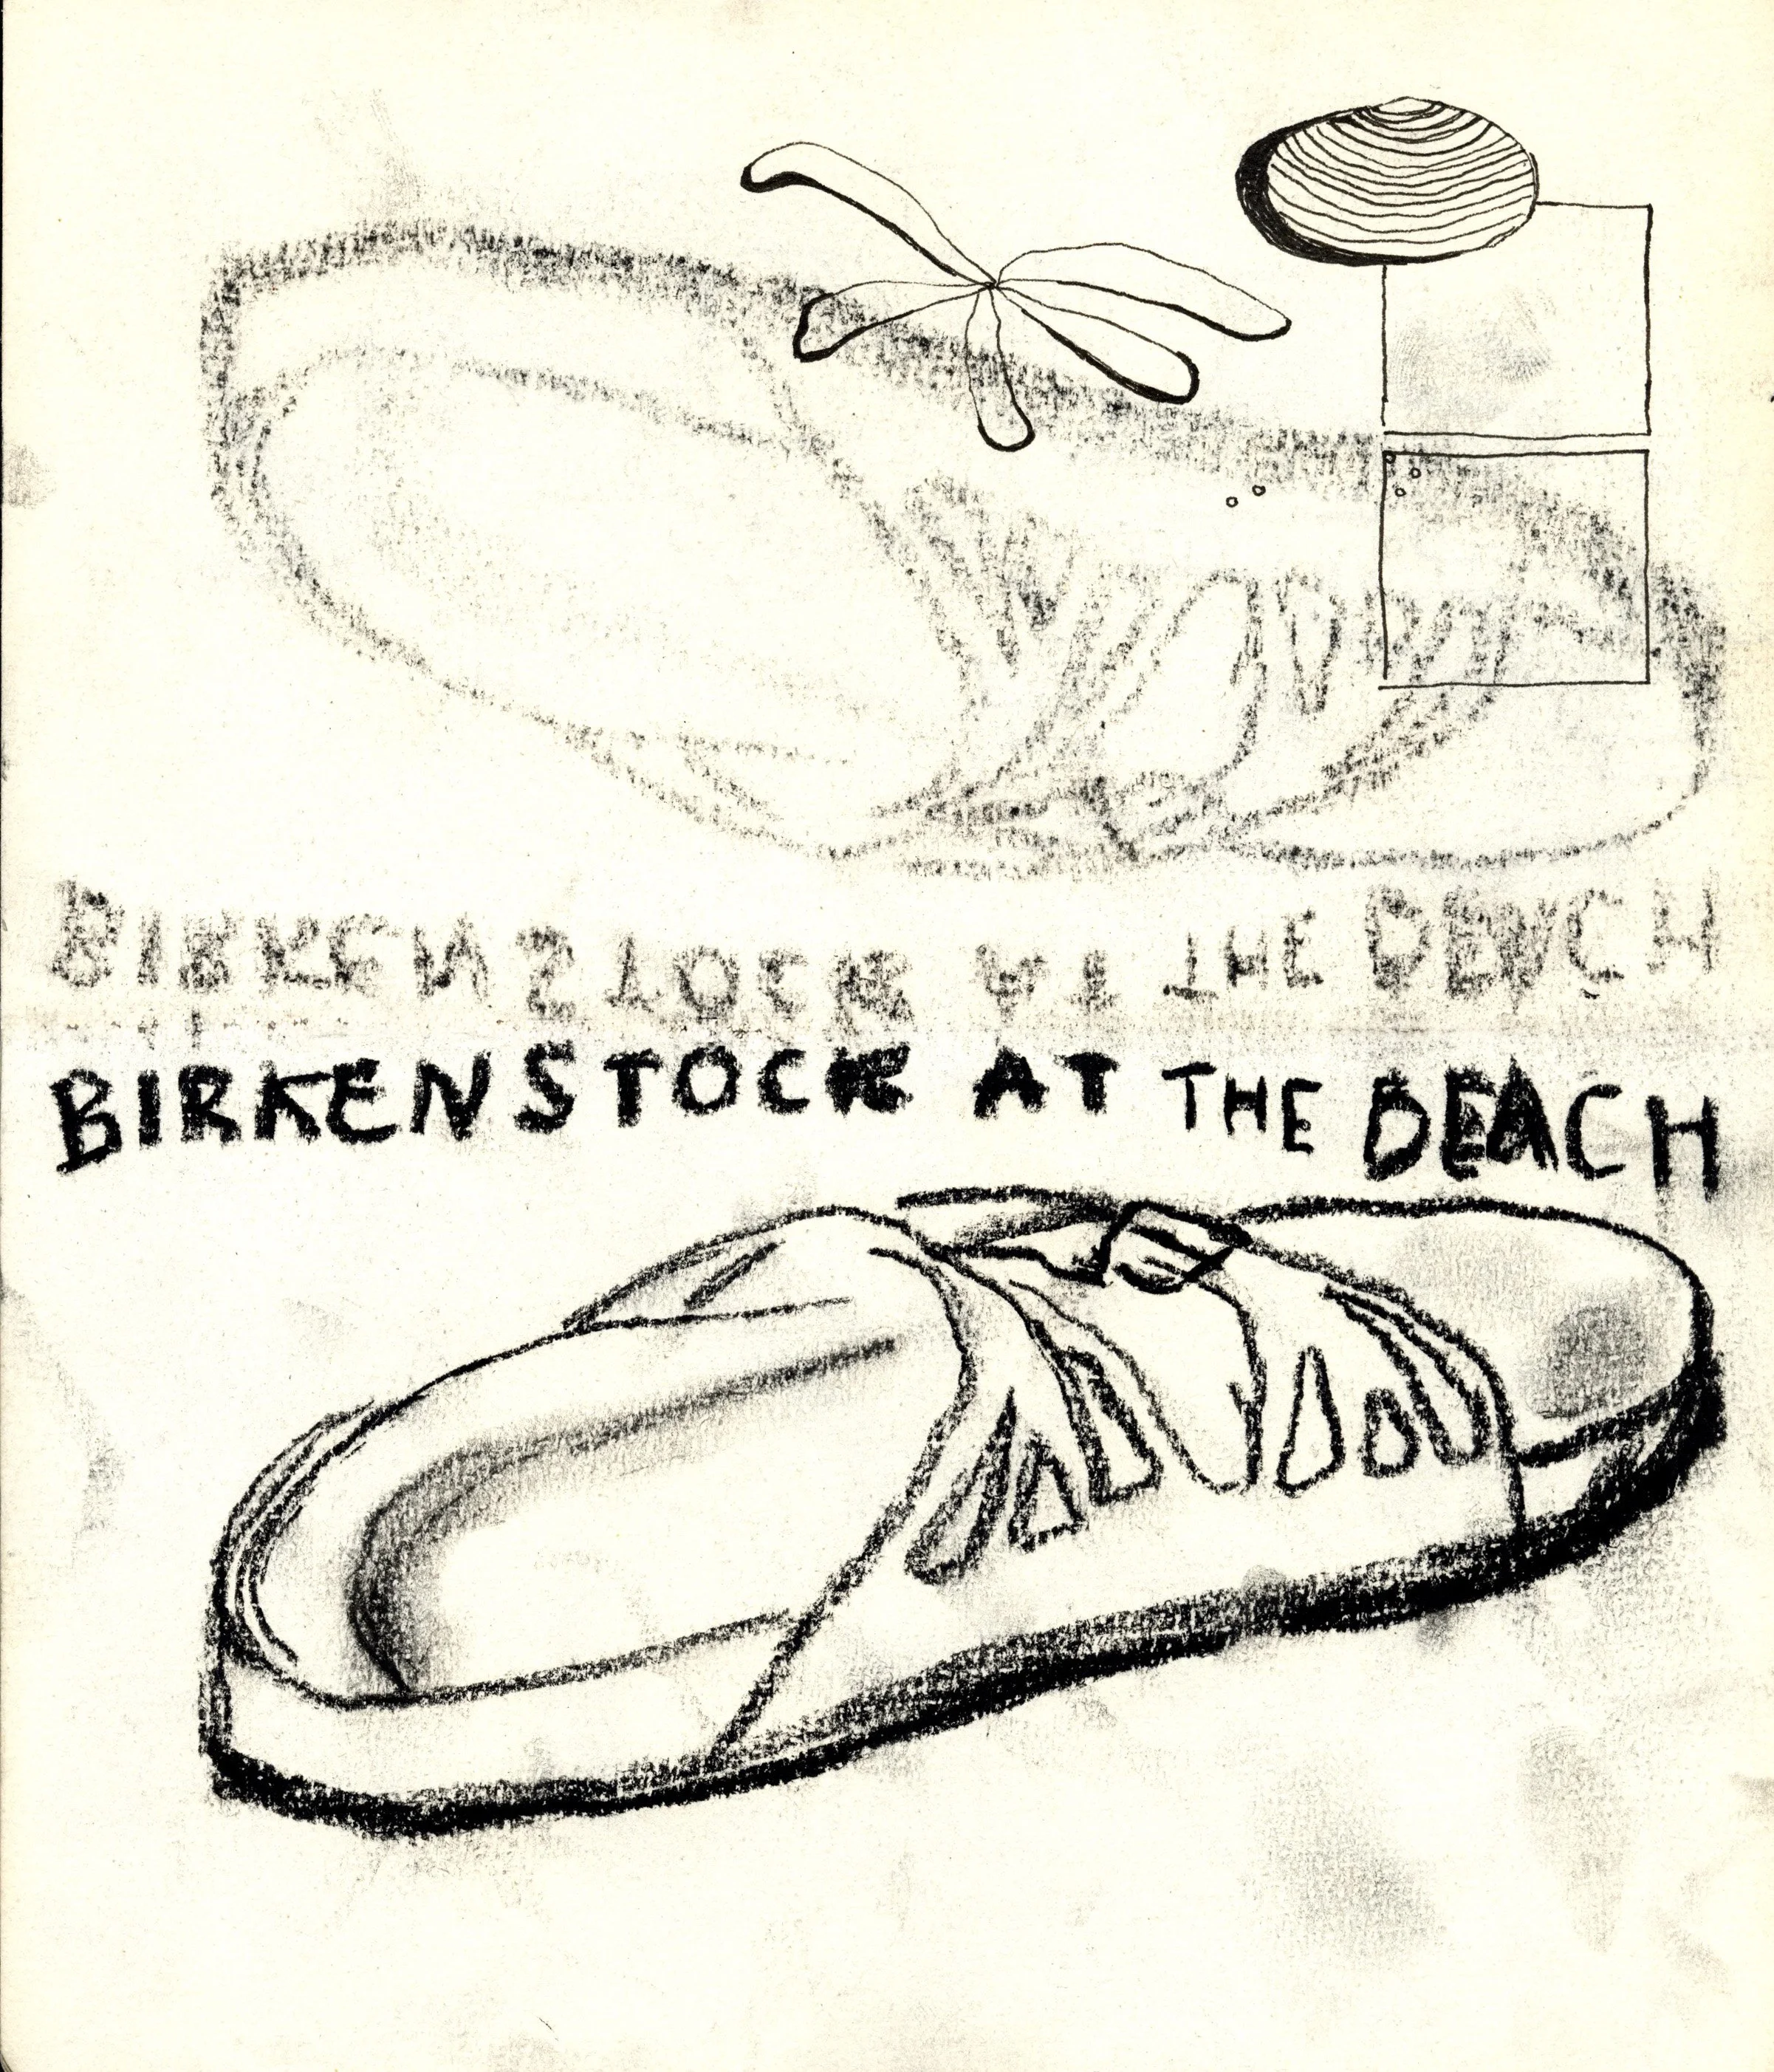 BIRKENSTOCK AT THE BEACH